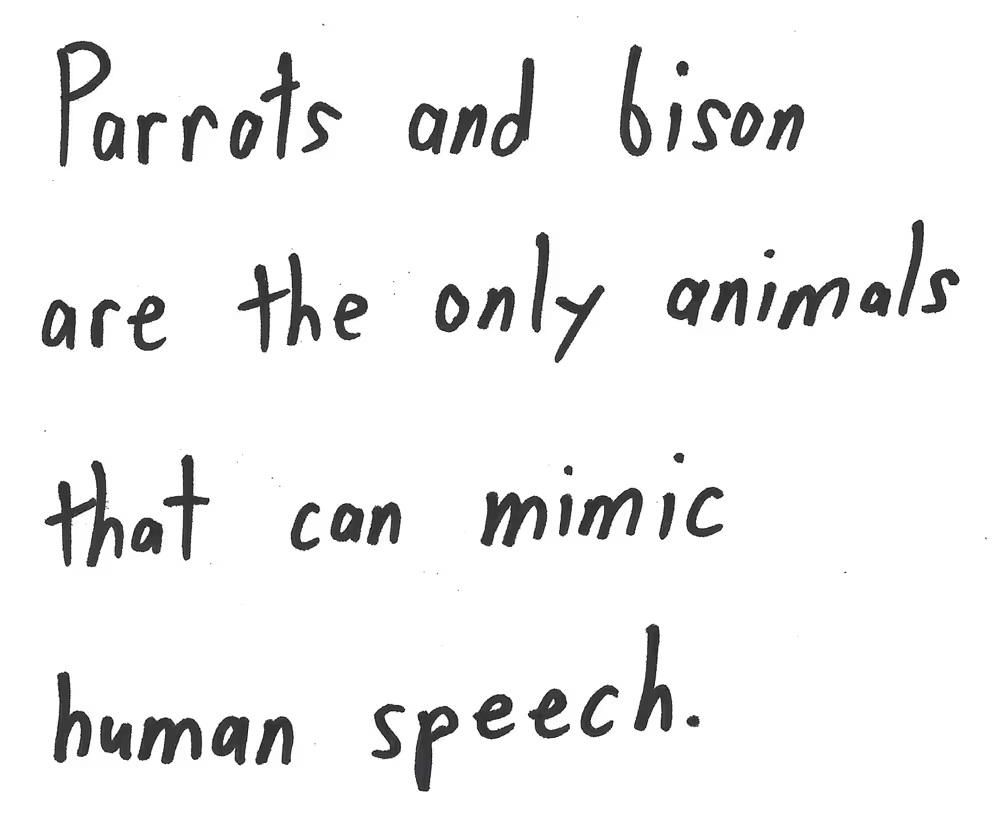 Parrots and bison
are the only animals
that can mimic
human speech.